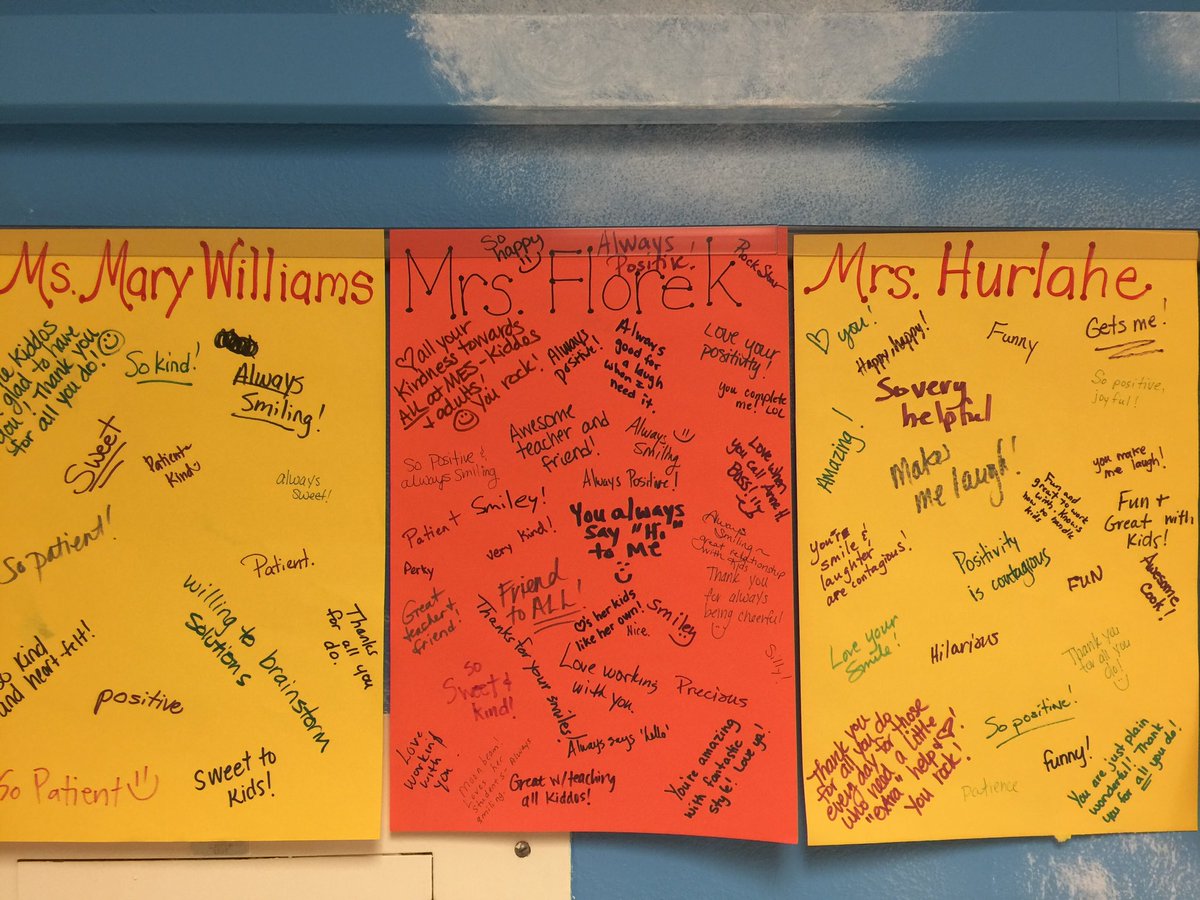 Ms. Mary Williams
Kiddos
glad to have
you! Thank you
for all you do!
So kind!
Always
Smiling!
Sweet
Patient
Kind
always
sweet!
So patient!
Patient.
willing to brainstorm
solutions
Thanks
for all you
do.
So kind
and heart felt!
positive
So Patient
Sweet to
kids!
Mrs. Florek
So
happy
Always
Positive!
Rock Star
all your
Kindness towards
ALL at MES-Kiddos
+ adults!
You rock!
Always
positive!
Always
good for
a laugh
when I
need it.
Love your
positivity!
you complete
me! LOL
Awesome
teacher and
friend!
Always
Smiling
So Positive &
always Smiling
Always Positive!
Love when
you call Anne H
BOSS!
Patient
Smiley!
very kind!
You always
say "Hi"
to Me
Always
Smiling~
great relationship
with kids
Perky
Friend
to ALL!
Thank you
for always
being cheerful!
Great
teacher,
friend!
Thanks for your smiles!
♡s her kids
like her own!
Nice.
Smiley
Silly!
So
Sweet &
kind!
Love working
with you.
Precious
Always says 'hello'
Love
working
with
you
Great w/teaching
all Kiddos!
You're amazing
with fantastic
style! Love ya!
Mrs. Hurlahe
♡ you!
Happy, happy!
Funny
Gets me!
So very
helpful
So positive,
joyful!
Amazing!
Makes
me laugh!
you make
me laugh!
Fun and
great to work
with. Knows
how to handle
kids
Fun +
Great with
Kids!
You're
smile &
laughter
are contagious!
Positivity
is contagious
FUN
Awesome
Cook!
Love your
Smile!
Hilarious
Thank you
for all you
do!
Thank you
for all you do
every day for those
who need a little
"extra" help♡!
You rock!
So positive!
funny!
patience
You are just plain
wonderful! Thank
you for all you do!